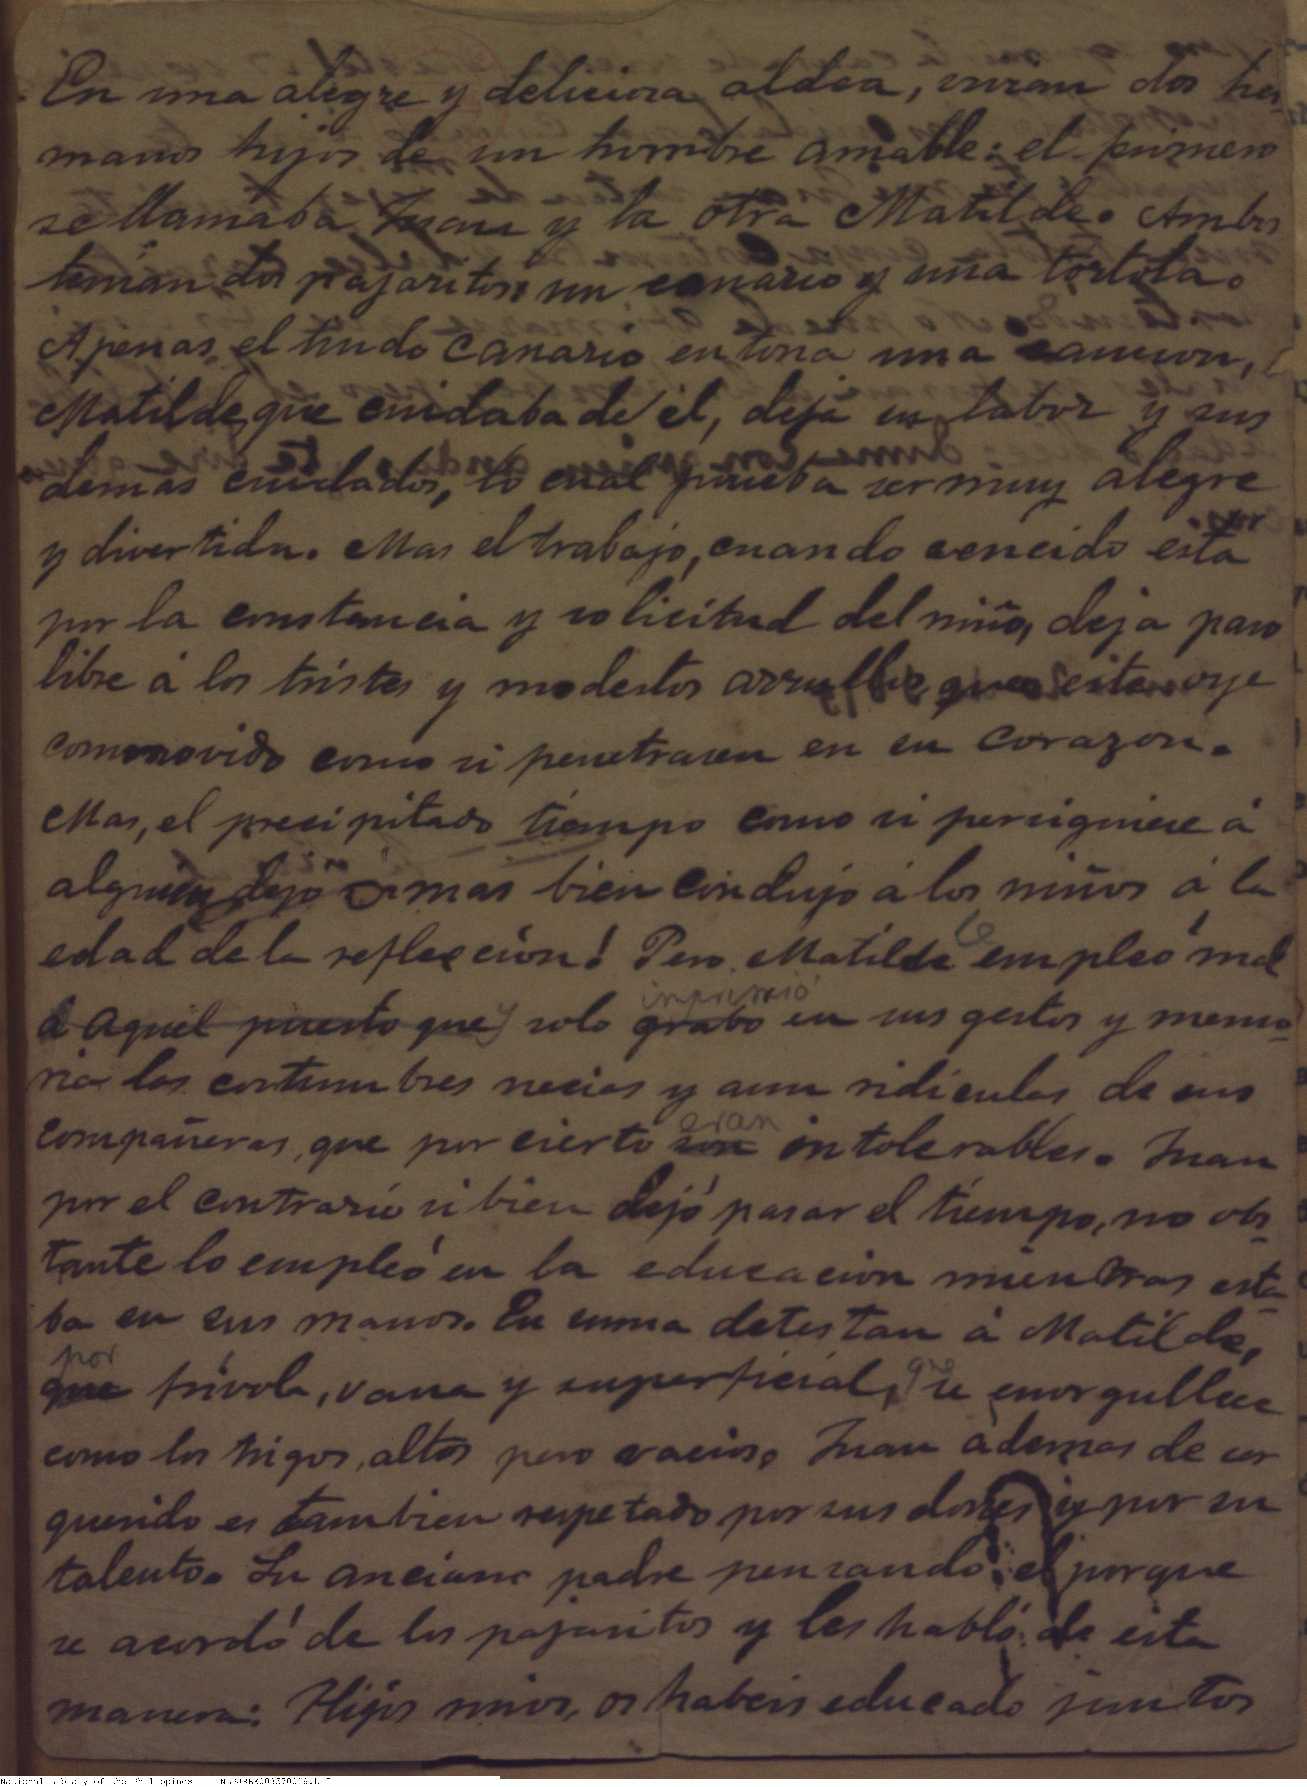 En una alegre y deliciosa aldea, vivian dos her-
manos hijos de un hombre amable: el primero
se llamaba Juan y la otra Matilde. Ambos
tenian dos pajaritos: un canario y una tórtola.
Apenas el lindo canario entona una cancion,
Matilde, que cuidaba de él, deja su labor y sus
demas cuidados, lo cual prueba ser muy alegre
y divertida. Mas el trabajo, cuando vencido está
por la constancia y solicitud del niño, deja paso
libre á los tristes y modestos arrullos que este oye
conmovido como si penetrasen en su corazon.
Mas, el precipitado tiempo como si persiguiese á
alguien dejó mas bien condujo á los niños á la
edad de la refleccion! Pero Matilde le empleó mal
á aquel puesto que y solo grabó imprimió en sus gestos y memo-
ria las costumbres necias y aun ridiculas de sus
compañeras, que por cierto son eran intolerables. Juan
por el contrario si bien dejó pasar el tiempo, no obs-
tante lo empleó en la educacion mientras esta-
ba en sus manos. En suma detestan á Matilde,
que por frivola, vana y superficial, que se enorgullece
como los higos, altos pero vacios. Juan ademas de ser
querido es tambien respetado por sus dotes y por su
talento. Su anciano padre pensando el porque
se acordó de los pajaritos y les habló de esta
manera: Hijos mios, os habeis educado juntos
National Library of the Philippines